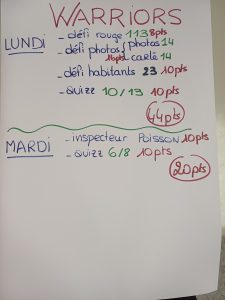 WARRIORS
LUNDI
- défi rouge 113 8pts
- défi photos { photos 14
10pts - carte 14
- défi habitants 23 10pts
- quizz 10/13 10pts
44pts
MARDI
- inspecteur Poisson 10pts
- quizz 6/8 10pts
20pts